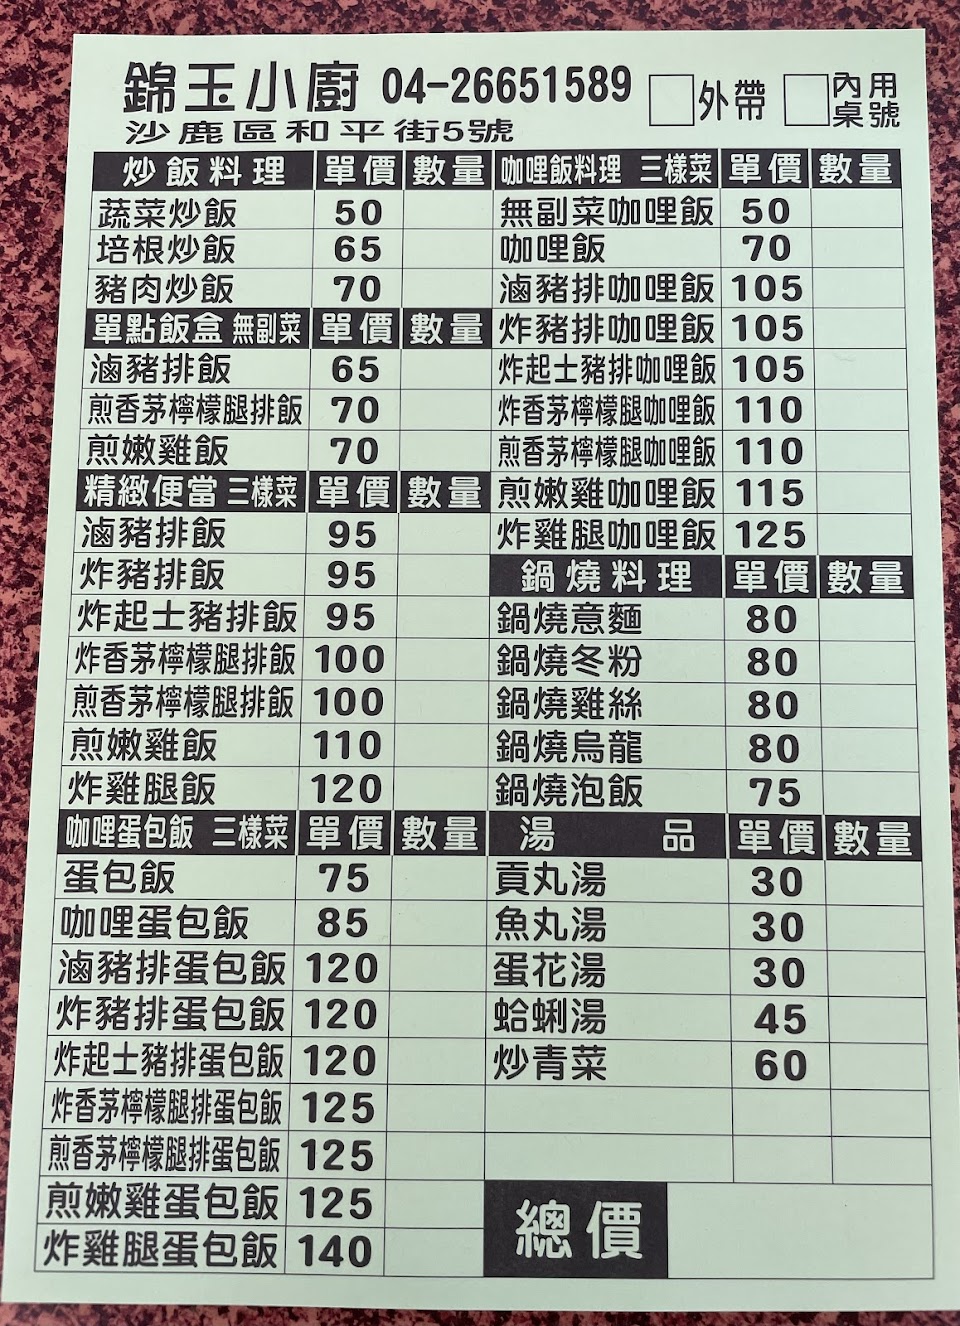 錦玉小廚 04-26651589 外帶 內用桌號
沙鹿區和平街5號
炒飯料理 單價 數量
蔬菜炒飯 50
培根炒飯 65
豬肉炒飯 70
單點飯盒 無副菜 單價 數量
滷豬排飯 65
煎香茅檸檬腿排飯 70
煎嫩雞飯 70
精緻便當 三樣菜 單價 數量
滷豬排飯 95
炸豬排飯 95
炸起士豬排飯 95
炸香茅檸檬腿排飯 100
煎香茅檸檬腿排飯 100
煎嫩雞飯 110
炸雞腿飯 120
咖哩蛋包飯 三樣菜 單價 數量
蛋包飯 75
咖哩蛋包飯 85
滷豬排蛋包飯 120
炸豬排蛋包飯 120
炸起士豬排蛋包飯 120
炸香茅檸檬腿排蛋包飯 125
煎香茅檸檬腿排蛋包飯 125
煎嫩雞蛋包飯 125
炸雞腿蛋包飯 140
咖哩飯料理 三樣菜 單價 數量
無副菜咖哩飯 50
咖哩飯 70
滷豬排咖哩飯 105
炸豬排咖哩飯 105
炸起士豬排咖哩飯 105
炸香茅檸檬腿咖哩飯 110
煎香茅檸檬腿咖哩飯 110
煎嫩雞咖哩飯 115
炸雞腿咖哩飯 125
鍋燒料理 單價 數量
鍋燒意麵 80
鍋燒冬粉 80
鍋燒雞絲 80
鍋燒烏龍 80
鍋燒泡飯 75
湯品 單價 數量
貢丸湯 30
魚丸湯 30
蛋花湯 30
蛤蜊湯 45
炒青菜 60
總價